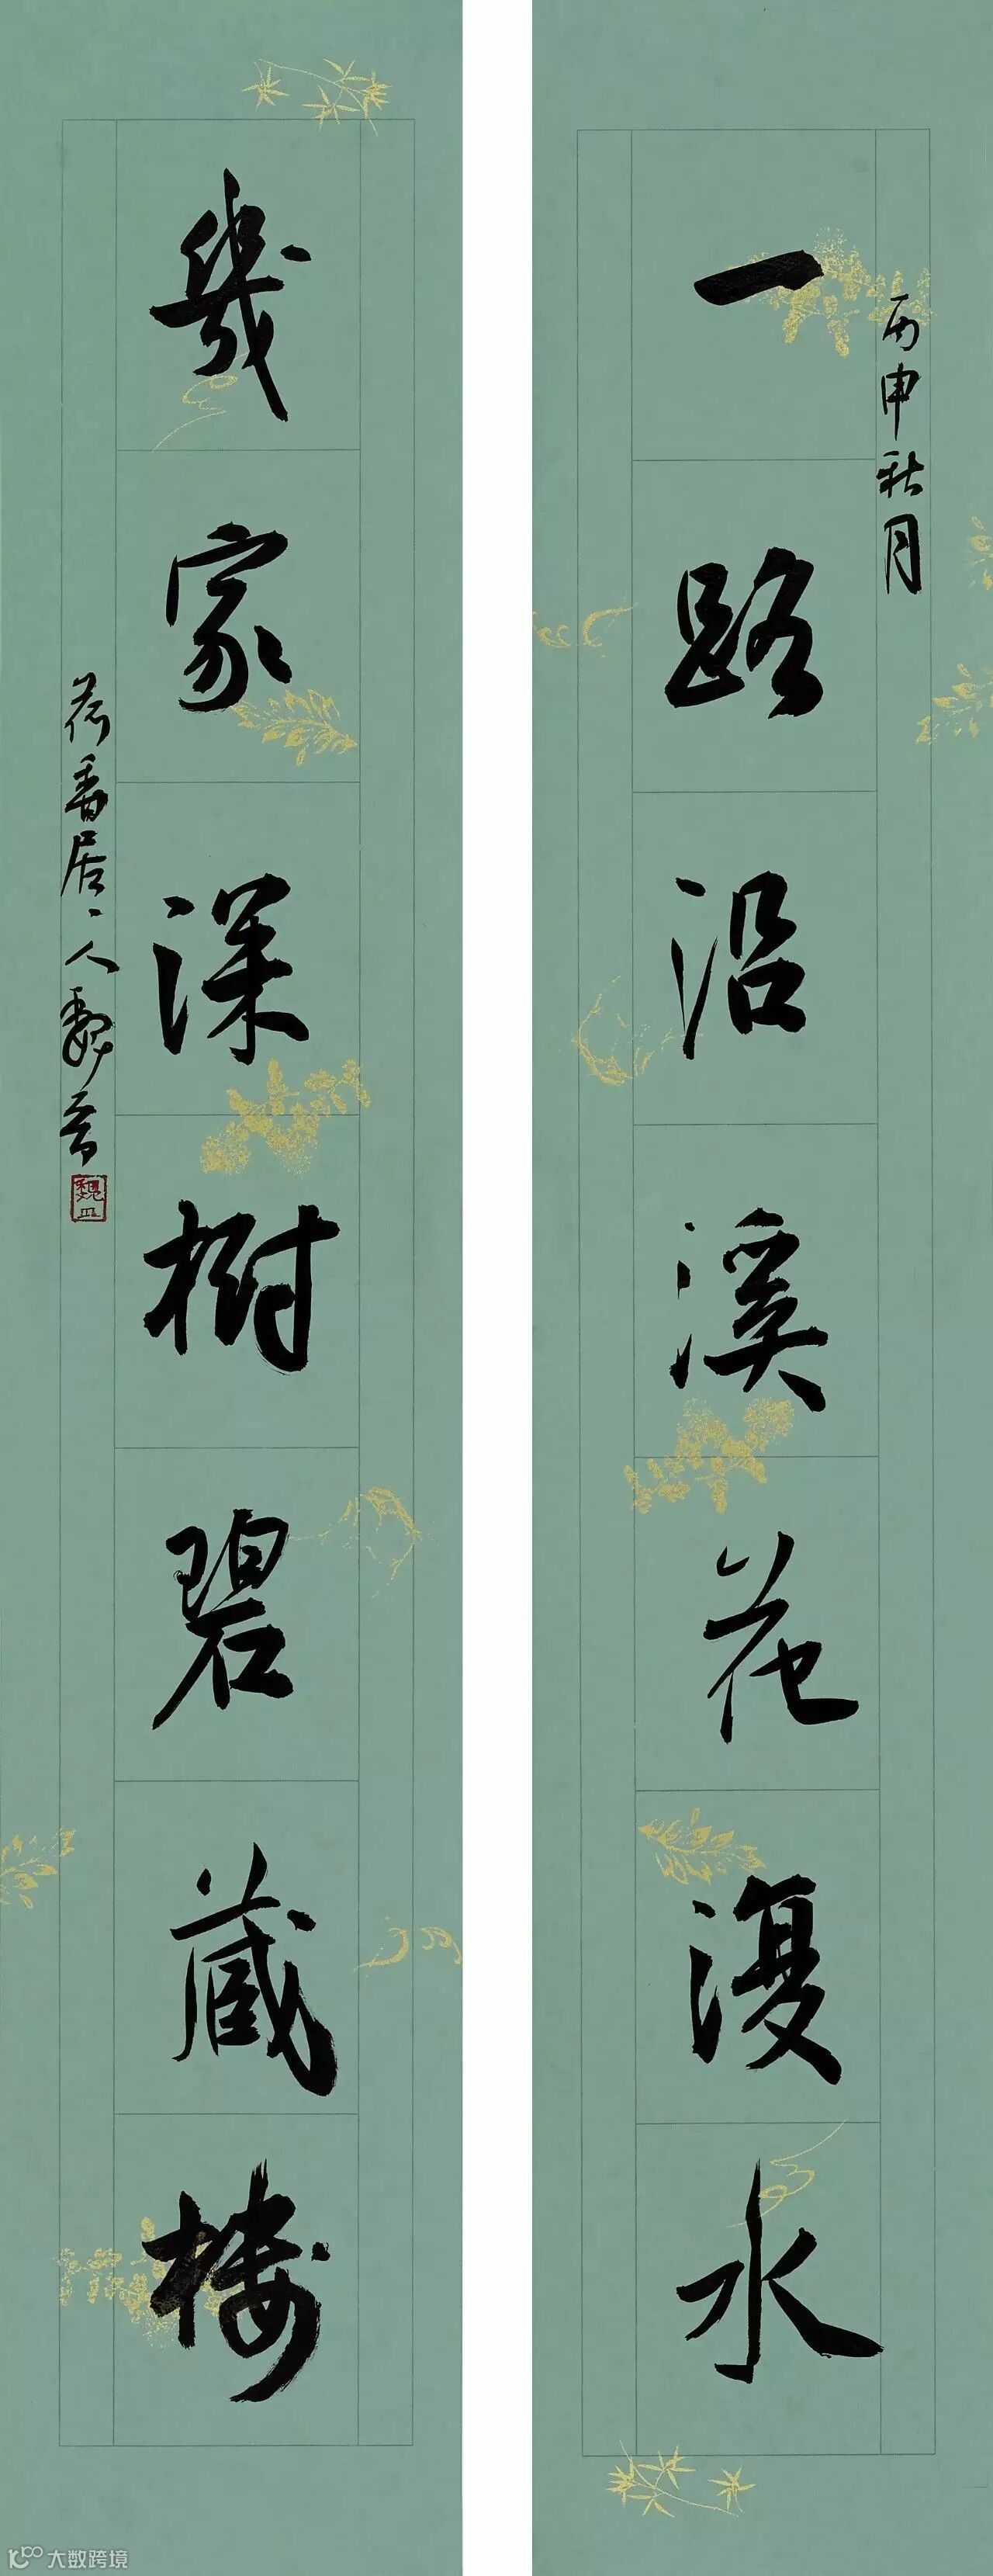 丙申秋月
一路沿溪花覆水
幾家深樹碧藏樓
荷香居主人魏
大数跨境